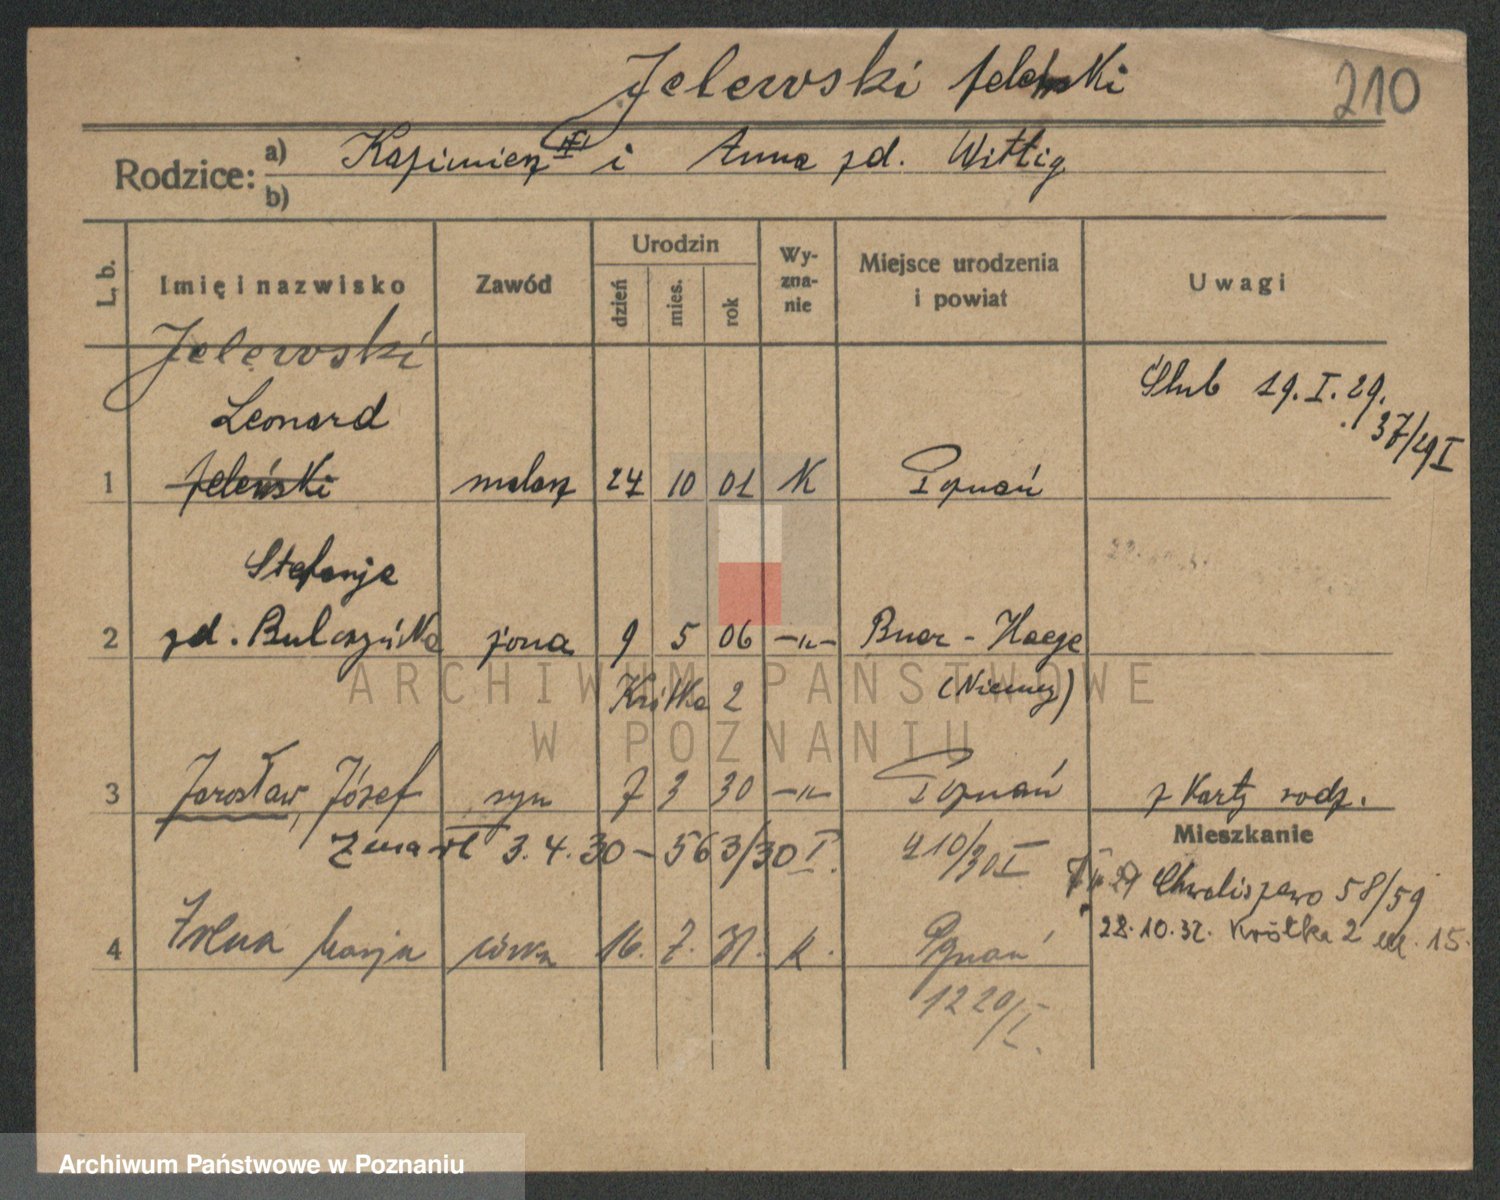 Jelewski Jeleński
210
Rodzice: a) Kazimierz i Anna zd. Wittig
b)
L. b. Imię i nazwisko Zawód Urodzin dzień mies. rok Wyznanie Miejsce urodzenia i powiat Uwagi
Jelewski
Leonard
Ślub 19. I. 29.
37/29 I
1 Jeleński malarz 27 10 01 K Poznań
Stefanja
2 zd. Bulczyńska żona 9 5 06 -"- Buer - Haege
Krótka 2 (Niemcy)
3 Jarosław, Józef syn 7 3 30 -"- Poznań z Karty rodz.
Zmarł 3.4.30 - 563/30 I. 410/30 I
Mieszkanie
29 Chwaliszewo 58/59
22.10.32. Krótka 2 m. 15.
4 Irena Marja córka 16. 7. 31. k. Poznań
1220/I.
ARCHIWUM PAŃSTWOWE
W POZNANIU
Archiwum Państwowe w Poznaniu